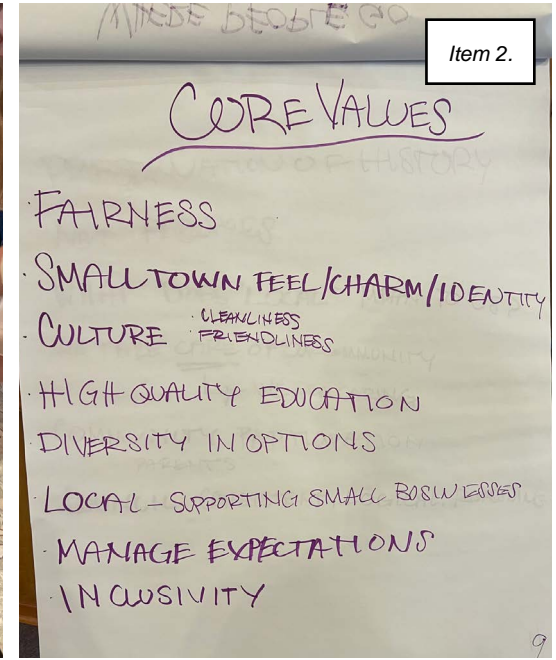 WHERE PEOPLE GO
Item 2.
CORE VALUES
· FAIRNESS
· SMALL TOWN FEEL/CHARM/IDENTITY
· CULTURE · CLEANLINESS
· FRIENDLINESS
· HIGH QUALITY EDUCATION
· DIVERSITY IN OPTIONS
· LOCAL - SUPPORTING SMALL BUSINESSES
· MANAGE EXPECTATIONS
· INCLUSIVITY
9